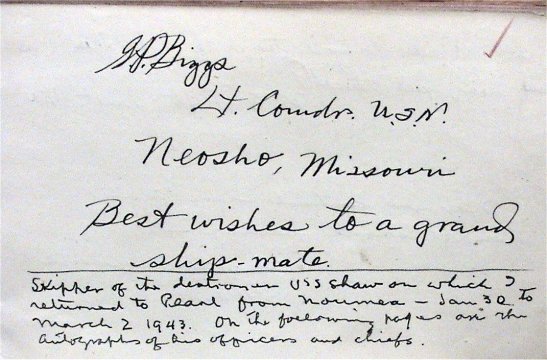 G.P. Biggs
Lt. Comdr. U.S.N.
Neosho, Missouri
Best wishes to a grand
ship-mate.
Skipper of the destroyer USS Shaw on which I
returned to Pearl from Noumea - Jan 30 to
March 2 1943. On the following pages are the
autographs of his officers and chiefs.